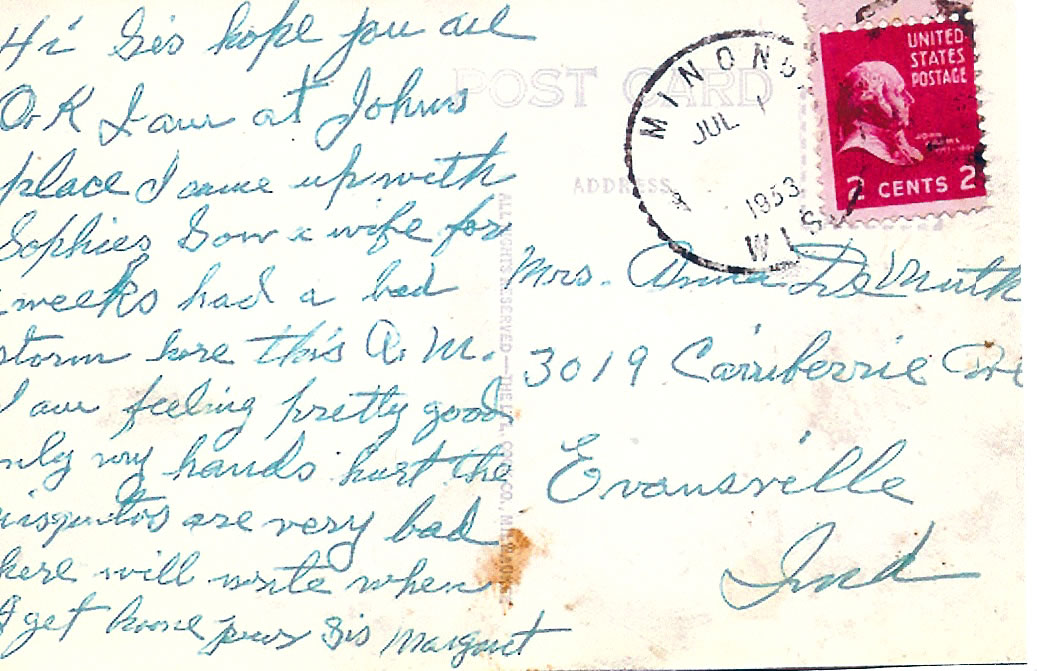 Hi Sis hope you all
O.K I am at Johns
place I came up with
Sophies Son & wife for
weeks had a bad
storm here this A.M.
I am feeling pretty good
only my hands hurt the
misquitos are very bad
here will write when
I get home your Sis Margret
POST CARD
ADDRESS
ALL RIGHTS RESERVED—THE L.L. COOK CO., MILWAUKEE
MINONG
JUL 1
1953
WIS.
UNITED
STATES
POSTAGE
2 CENTS 2
Mrs. Anna DeMuth
3019
Evansville
Ind